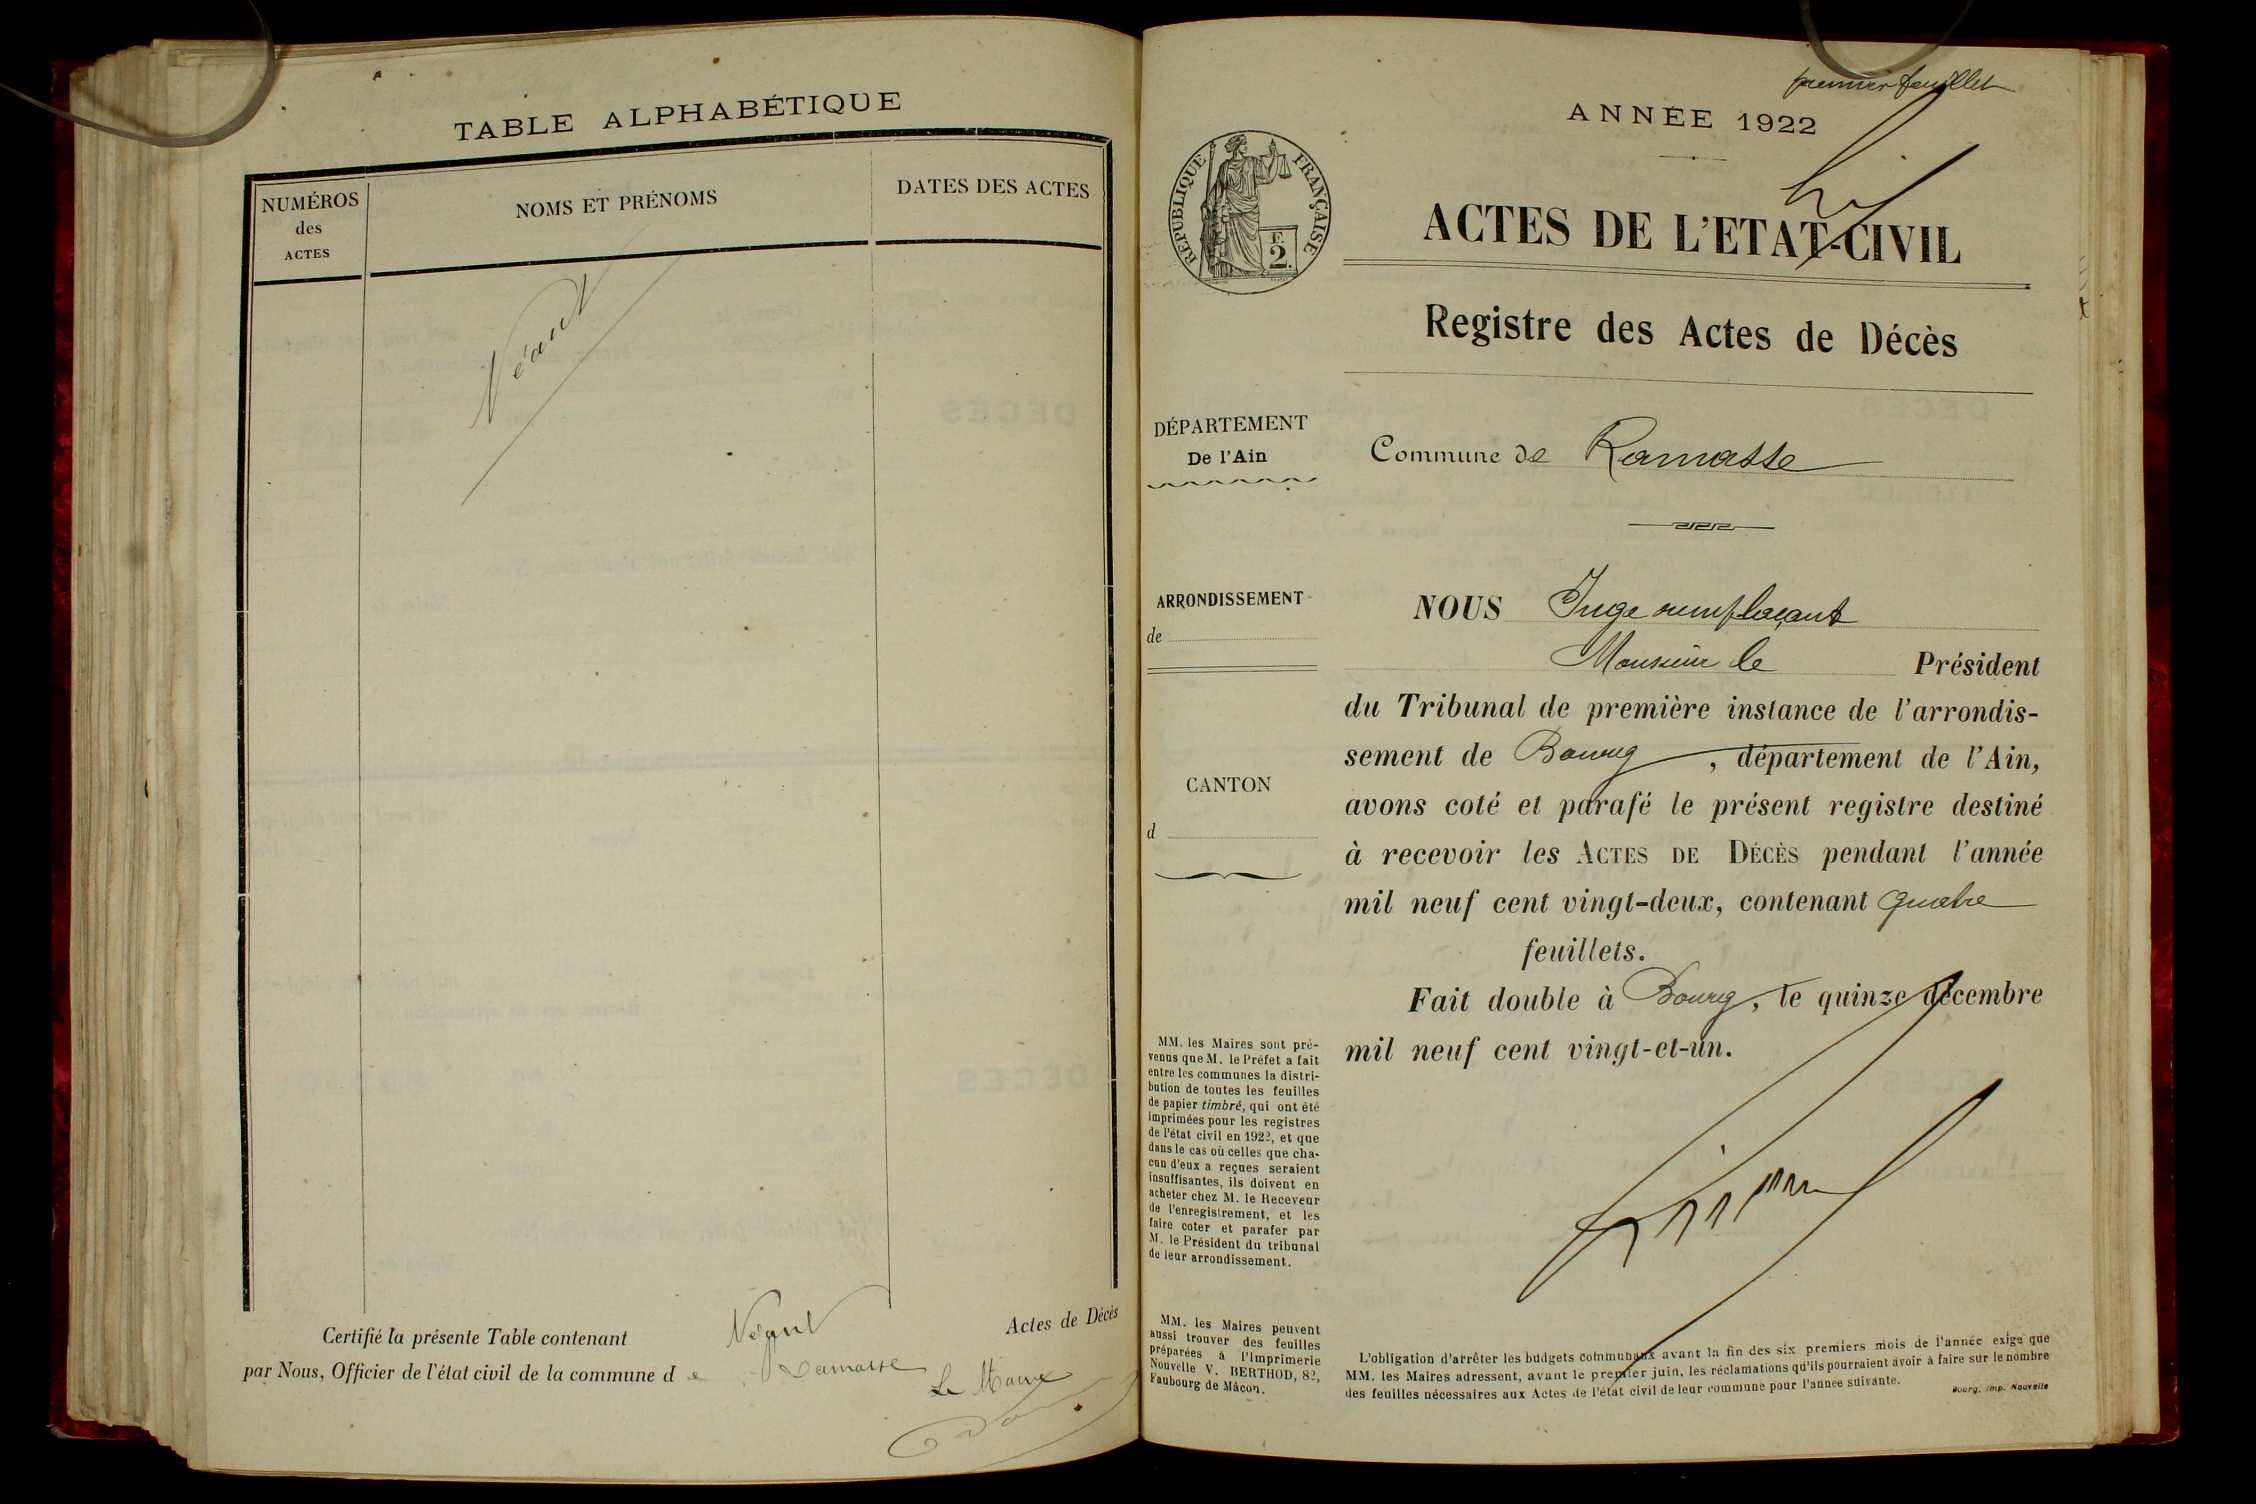 TABLE ALPHABÉTIQUE
NUMÉROS
des
ACTES
NOMS ET PRÉNOMS
DATES DES ACTES
Néant
Certifié la présente Table contenant Néant Actes de Décès
par Nous, Officier de l'état civil de la commune de Ramasse
Le Maire
premier feuillet
ANNÉE 1922
RÉPUBLIQUE FRANÇAISE
F.
2.
ACTES DE L'ETAT-CIVIL
Registre des Actes de Décès
DÉPARTEMENT
De l'Ain
Commune de Ramasse
ARRONDISSEMENT
de
CANTON
d
NOUS Juge remplaçant
Monsieur le Président
du Tribunal de première instance de l'arrondis-
sement de Bourg, département de l'Ain,
avons coté et parafé le présent registre destiné
à recevoir les ACTES DE DÉCÈS pendant l'année
mil neuf cent vingt-deux, contenant quatre
feuillets.
Fait double à Bourg, le quinze décembre
mil neuf cent vingt-et-un.
MM. les Maires sont pré-
venus que M. le Préfet a fait
entre les communes la distri-
bution de toutes les feuilles
de papier timbré, qui ont été
imprimées pour les registres
de l'état civil en 1922, et que
dans le cas où celles que cha-
cun d'eux a reçues seraient
insuffisantes, ils doivent en
acheter chez M. le Receveur
de l'enregistrement, et les
faire coter et parafer par
M. le Président du tribunal
de leur arrondissement.
MM. les Maires peuvent
aussi trouver des feuilles
préparées à l'Imprimerie
Nouvelle V. BERTHOD, 82,
Faubourg de Mâcon.
L'obligation d'arrêter les budgets communaux avant la fin des six premiers mois de l'année exige que
MM. les Maires adressent, avant le premier juin, les réclamations qu'ils pourraient avoir à faire sur le nombre
des feuilles nécessaires aux Actes de l'état civil de leur commune pour l'année suivante.
Bourg. Imp. Nouvelle